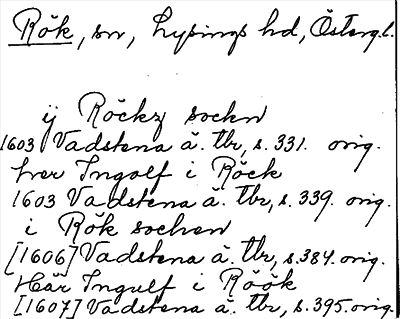 Rök, sn, Lysings hd, Österg.l.
ij Röckz sockn
1603 Vadstena ä. tbr, s. 331. orig.
her Ingolf i Röck
1603 Vadstena ä. tbr, s. 339. orig.
i Rök sochen
[1606] Vadstena ä. tbr, s. 384. orig.
Här Ingulf i Röök
[1607] Vadstena ä. tbr, s. 395. orig.